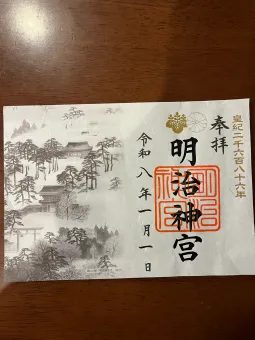 皇紀二千六百八十六年
奉拝
明治神宮
令和八年一月一日